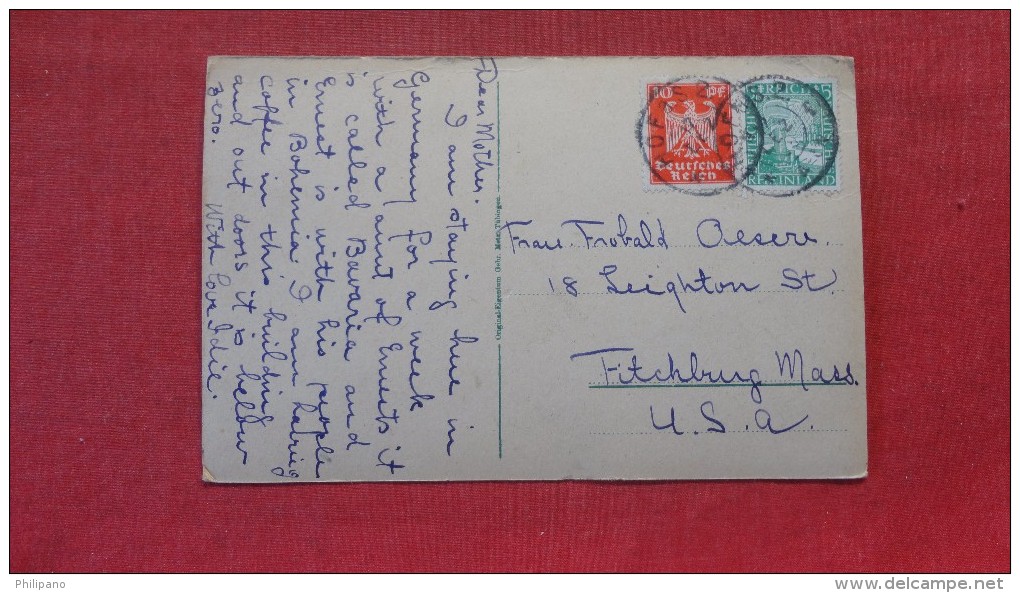 Dear Mother.
I am staying here in
Germany for a week
with a aunt of Ernests it
is called Bavaria and
Ernest is with his people
in Bohemia I am having
coffee in this building
and out doors it is below
zero. With love Idie.
Original-Eigentum Gebr. Metz, Tübingen
10 PF
Deutsches
Reich
REICH 5
RHEINLAND
Frau Frobald Oesere.
18 Leighton St.
Fitchburg Mass.
U.S.A.
Philipano
www.delcampe.net